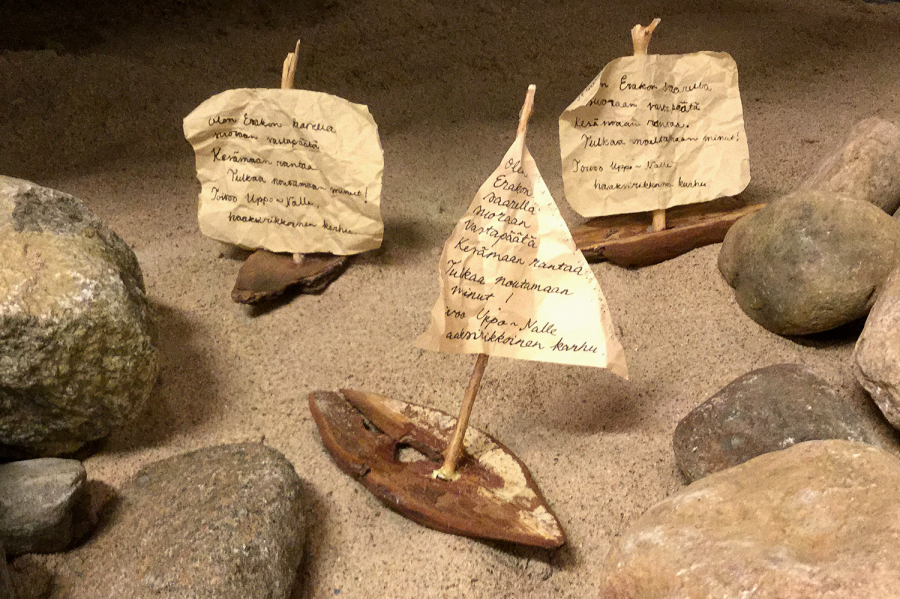 Olen Erakon
suoraan vastapäätä
Kesämaan rantaa
Tulkaa noutamaan minut!
Toivoo Uppo~Nalle,
haaksirikkoinen karhu
Ole
Erakon
saarella
suoraan
vastapäätä
Kesämaan rantaa
Tulkaa noutamaan
minut !
voo Uppo~Nalle
aaksirikkoinen karhu
n Erakon saarella
suoraan vastapäätä
Kesämaan rantaa.
Tulkaa noutamaan minut!
Toivoo Uppo~Nalle
haaksirikkoinen karhu